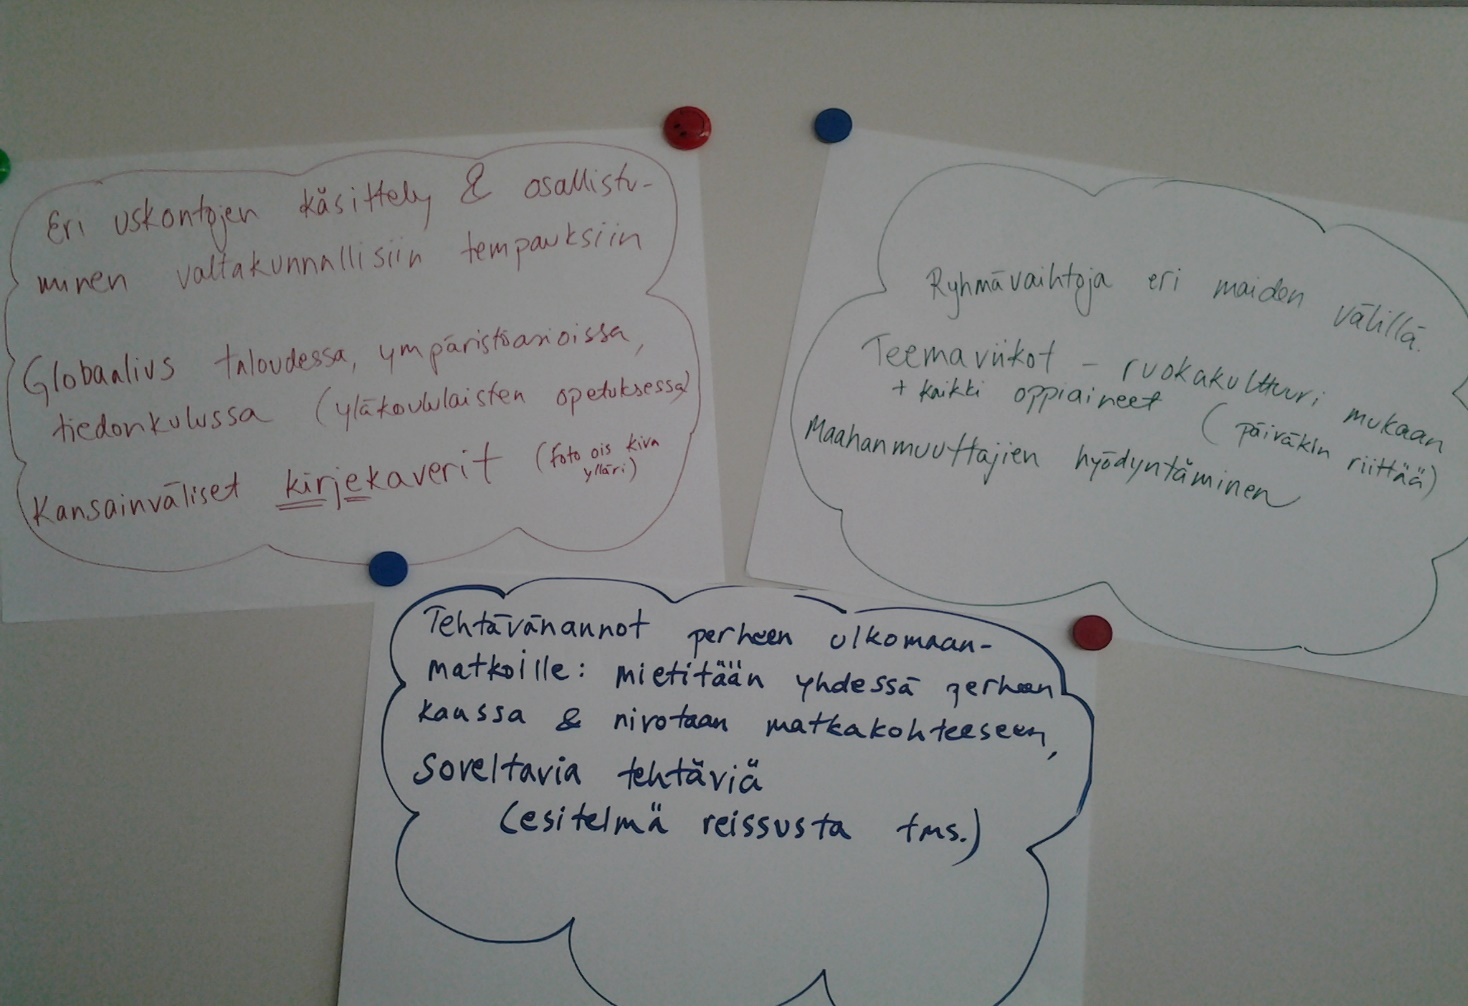 Eri uskontojen käsittely & osallistu-
minen valtakunnallisiin tempauksiin
Globaalius taloudessa, ympäristöasioissa,
tiedonkulussa (yläkoululaisten opetuksessa)
Kansainväliset kirjekaverit (foto ois kiva
ylläri)
Ryhmävaihtoja eri maiden välillä.
Teemaviikot – ruokakulttuuri mukaan
+ kaikki oppiaineet (päiväkin riittää)
Maahanmuuttajien hyödyntäminen
Tehtävänannot perheen ulkomaan-
matkoille: mietitään yhdessä perheen
kanssa & nivotaan matkakohteeseen,
soveltavia tehtäviä
(esitelmä reissusta tms.)